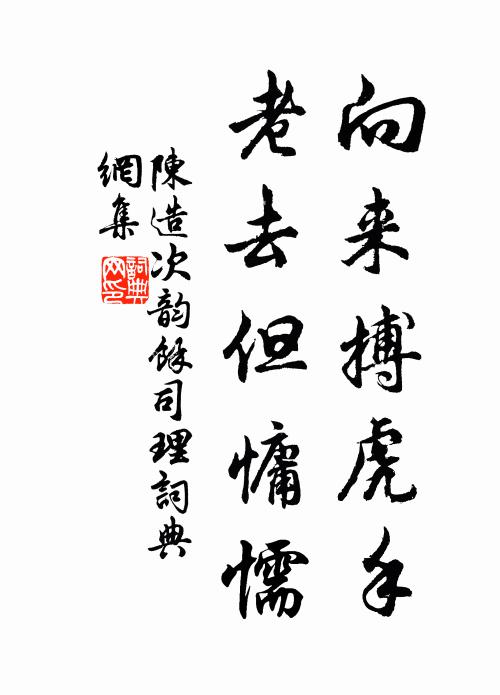 向来搏虎手
老去但慵懦
陳造次韵餘司理詞典
網集
詞典網印